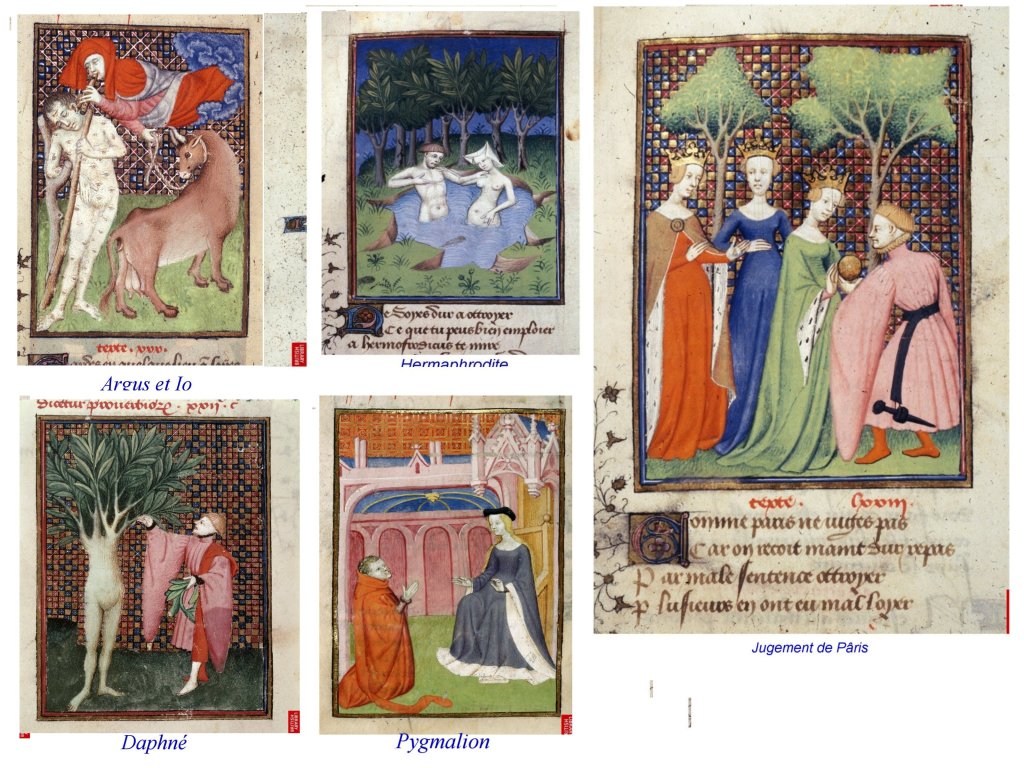 texte . xxv.
Argus et Io
Ne soyes dur a ottroyer
Ce que tu peus bien emploier
a hermofrodicus te mire
Hermaphrodite
texte. lxxiii.
Comme paris ne iuges pas
Car on recoit maint dur repas
Par male sentence ottroyer
plusieurs en ont eu mal loyer
Jugement de Pâris
Daphné
Pygmalion